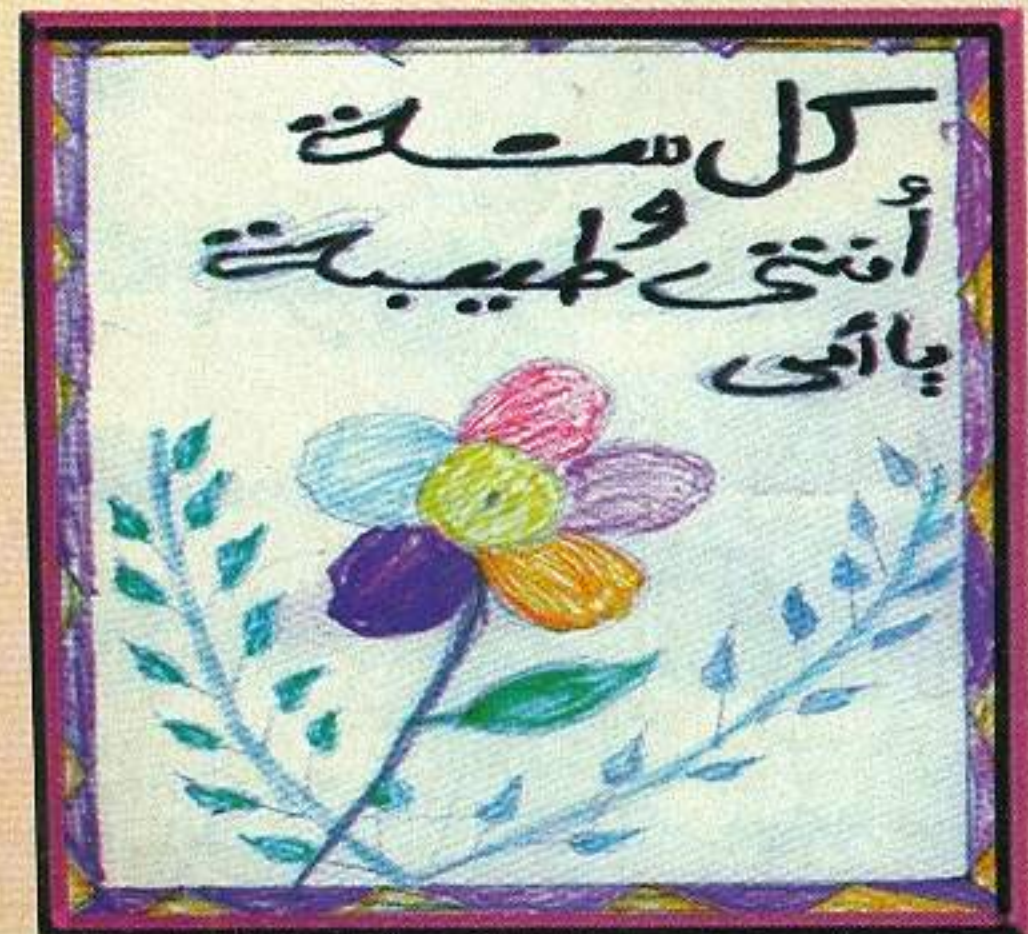 كل سنة
أنتى وطيبة
يا أمى